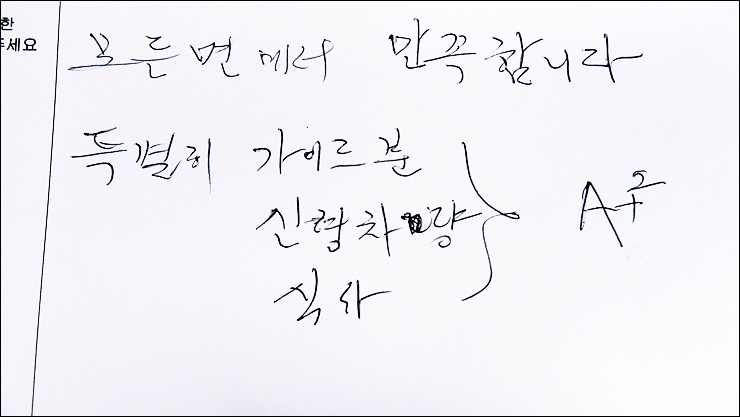 한
주세요
모든면에서 만족합니다
특별히 가이드분
신형차량
식사
A+